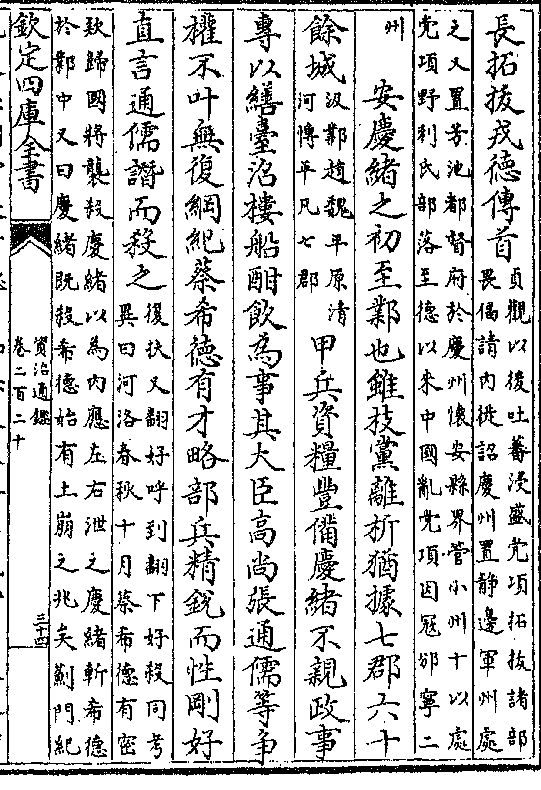 長拓拔戎德傳首貞觀以後吐蕃浸盛党項拓拔諸部
畏偪請内徙詔慶州置靜邊軍州處
之又置芳池都督府於慶州懐安縣界管小州十以處
党項野利氏部落至德以來中國亂党項因冦邠寧二
州
安慶緒之初至鄴也雖枝黨離析猶據七郡六十
餘城汲鄴趙魏平原清
河博平凡七郡甲兵資糧豐備慶緒不親政事
專以繕臺沼樓船酣飲為事其大臣髙尚張通儒等争
權不叶無復綱紀蔡希德有才略部兵精銳而性剛好
直言通儒譖而殺之復扶又翻好呼到翻下好殺同考
異曰河洛春秋十月蔡希德有密
欵歸國將襲殺慶緒以為内應左右泄之慶緒斬希德
於鄴中又曰慶緒既殺希德始有土崩之兆矣薊門紀
欽定四庫全書
資治通鑑
卷二百二十
三十四